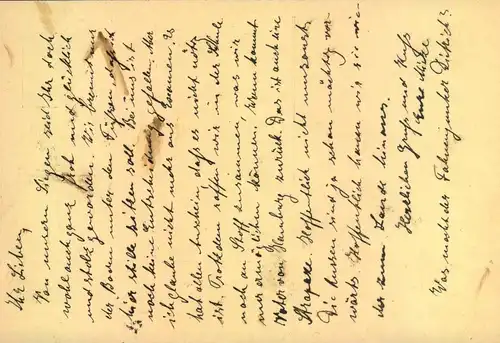 Ihr Lieben,
Von unsern Siegen seid Ihr doch
wohl auch ganz und glücklich
und stolz geworden. Uns brennt nun
der Boden unter den Füßen, daß
hier stille sitzen soll. Bei uns ist
noch keine Entscheidung gefallen. Aber
ich glaube nicht mehr ans Kommen. Es
hat allen Anschein, daß es nicht nötig
ist. Trotzdem raffen wir in der Schule
noch an Stoff zusammen, was wir
nur ermöglichen können. Wann kommt
Vater von Hamburg zurück. Das ist auch eine
Strapaze. Hoffentlich nicht umsonst.
Die Russen sind ja schon mächtig vor-
wärts. Hoffentlich hauen wir sie wie-
der zum Lande hinaus.
Herzlichen Gruß und Kuß
Eure
Was macht der Fahnenjunker Dietrich?